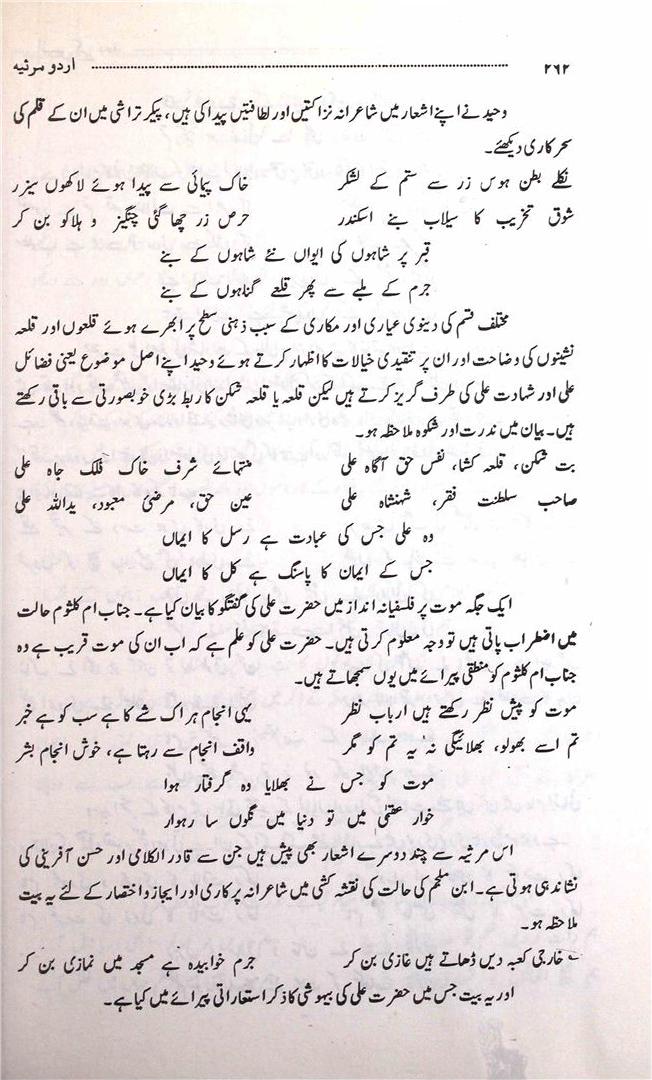 ۲۶۲ ........ اردو مرثیہ
وحید نے اپنے اشعار میں شاعرانہ نزاکتیں اور لطافتیں پیدا کی ہیں، پیکر تراشی میں ان کے قلم کی
سحر کاری دیکھئے۔
نکلے بطن ہوس زر سے ستم کے لشکر خاک پیائی سے پیدا ہوئے لاکھوں سیزر
شوق تخریب کا سیلاب بنے اسکندر حرص زر چھا گئی چنگیز و ہلاکو بن کر
قبر پر شاہوں کی ایواں نئے شاہوں کے بنے
جرم کے ملبے سے پھر قلعے گناہوں کے بنے
مختلف قسم کی دینوی عیاری اور مکاری کے سبب ذہنی سطح پر ابھرے ہوئے قلعوں اور قلعہ
نشینوں کی وضاحت اور ان پر تنقیدی خیالات کا اظہار کرتے ہوئے وحید اپنے اصل موضوع یعنی فضائل
علی اور شہادت علی کی طرف گریز کرتے ہیں لیکن قلعہ یا قلعہ شکن کا ربط بڑی خوبصورتی سے باقی رکھتے
ہیں۔ بیان میں ندرت اور شکوہ ملاحظہ ہو۔
بت شکن، قلعہ کشا، نفس حق آگاہ علی منتہائے شرف خاک فلک جاہ علی
صاحب سلطنت فقر، شہنشاہ علی عین حق، مرضیٔ معبود، یداللہ علی
وہ علی جس کی عبادت ہے رسل کا ایماں
جس کے ایمان کا پاسنگ ہے کل کا ایماں
ایک جگہ موت پر فلسفیانہ انداز میں حضرت علی کی گفتگو کا بیان کیا ہے۔ جناب ام کلثوم حالت
میں اضطراب پاتی ہیں تو وجہ معلوم کرتی ہیں۔ حضرت علی کو علم ہے کہ اب ان کی موت قریب ہے وہ
جناب ام کلثوم کو منطقی پیرائے میں یوں سمجھاتے ہیں۔
موت کو پیش نظر رکھتے ہیں ارباب نظر یہی انجام ہر اک شے کا ہے سب کو ہے خبر
تم اسے بھولو، بھلائیگی نہ یہ تم کو مگر واقف انجام سے رہتا ہے، خوش انجام بشر
موت کو جس نے بھلایا وہ گرفتار ہوا
خوار عقبیٰ میں تو دنیا میں نگوں سا رہوار
اس مرثیہ سے چند دوسرے اشعار بھی پیش ہیں جن سے قادر الکلامی اور حسن آفرینی کی
نشاندہی ہوتی ہے۔ ابن ملجم کی حالت کی نقشہ کشی میں شاعرانہ پرکاری اور ایجاز و اختصار کے لئے یہ بیت
ملاحظہ ہو۔
خارجی کعبہ دیں ڈھاتے ہیں غازی بن کر جرم خوابیدہ ہے مسجد میں نمازی بن کر
اور یہ بیت جس میں حضرت علی کی بیہوشی کا ذکر استعاراتی پیرائے میں کیا ہے۔